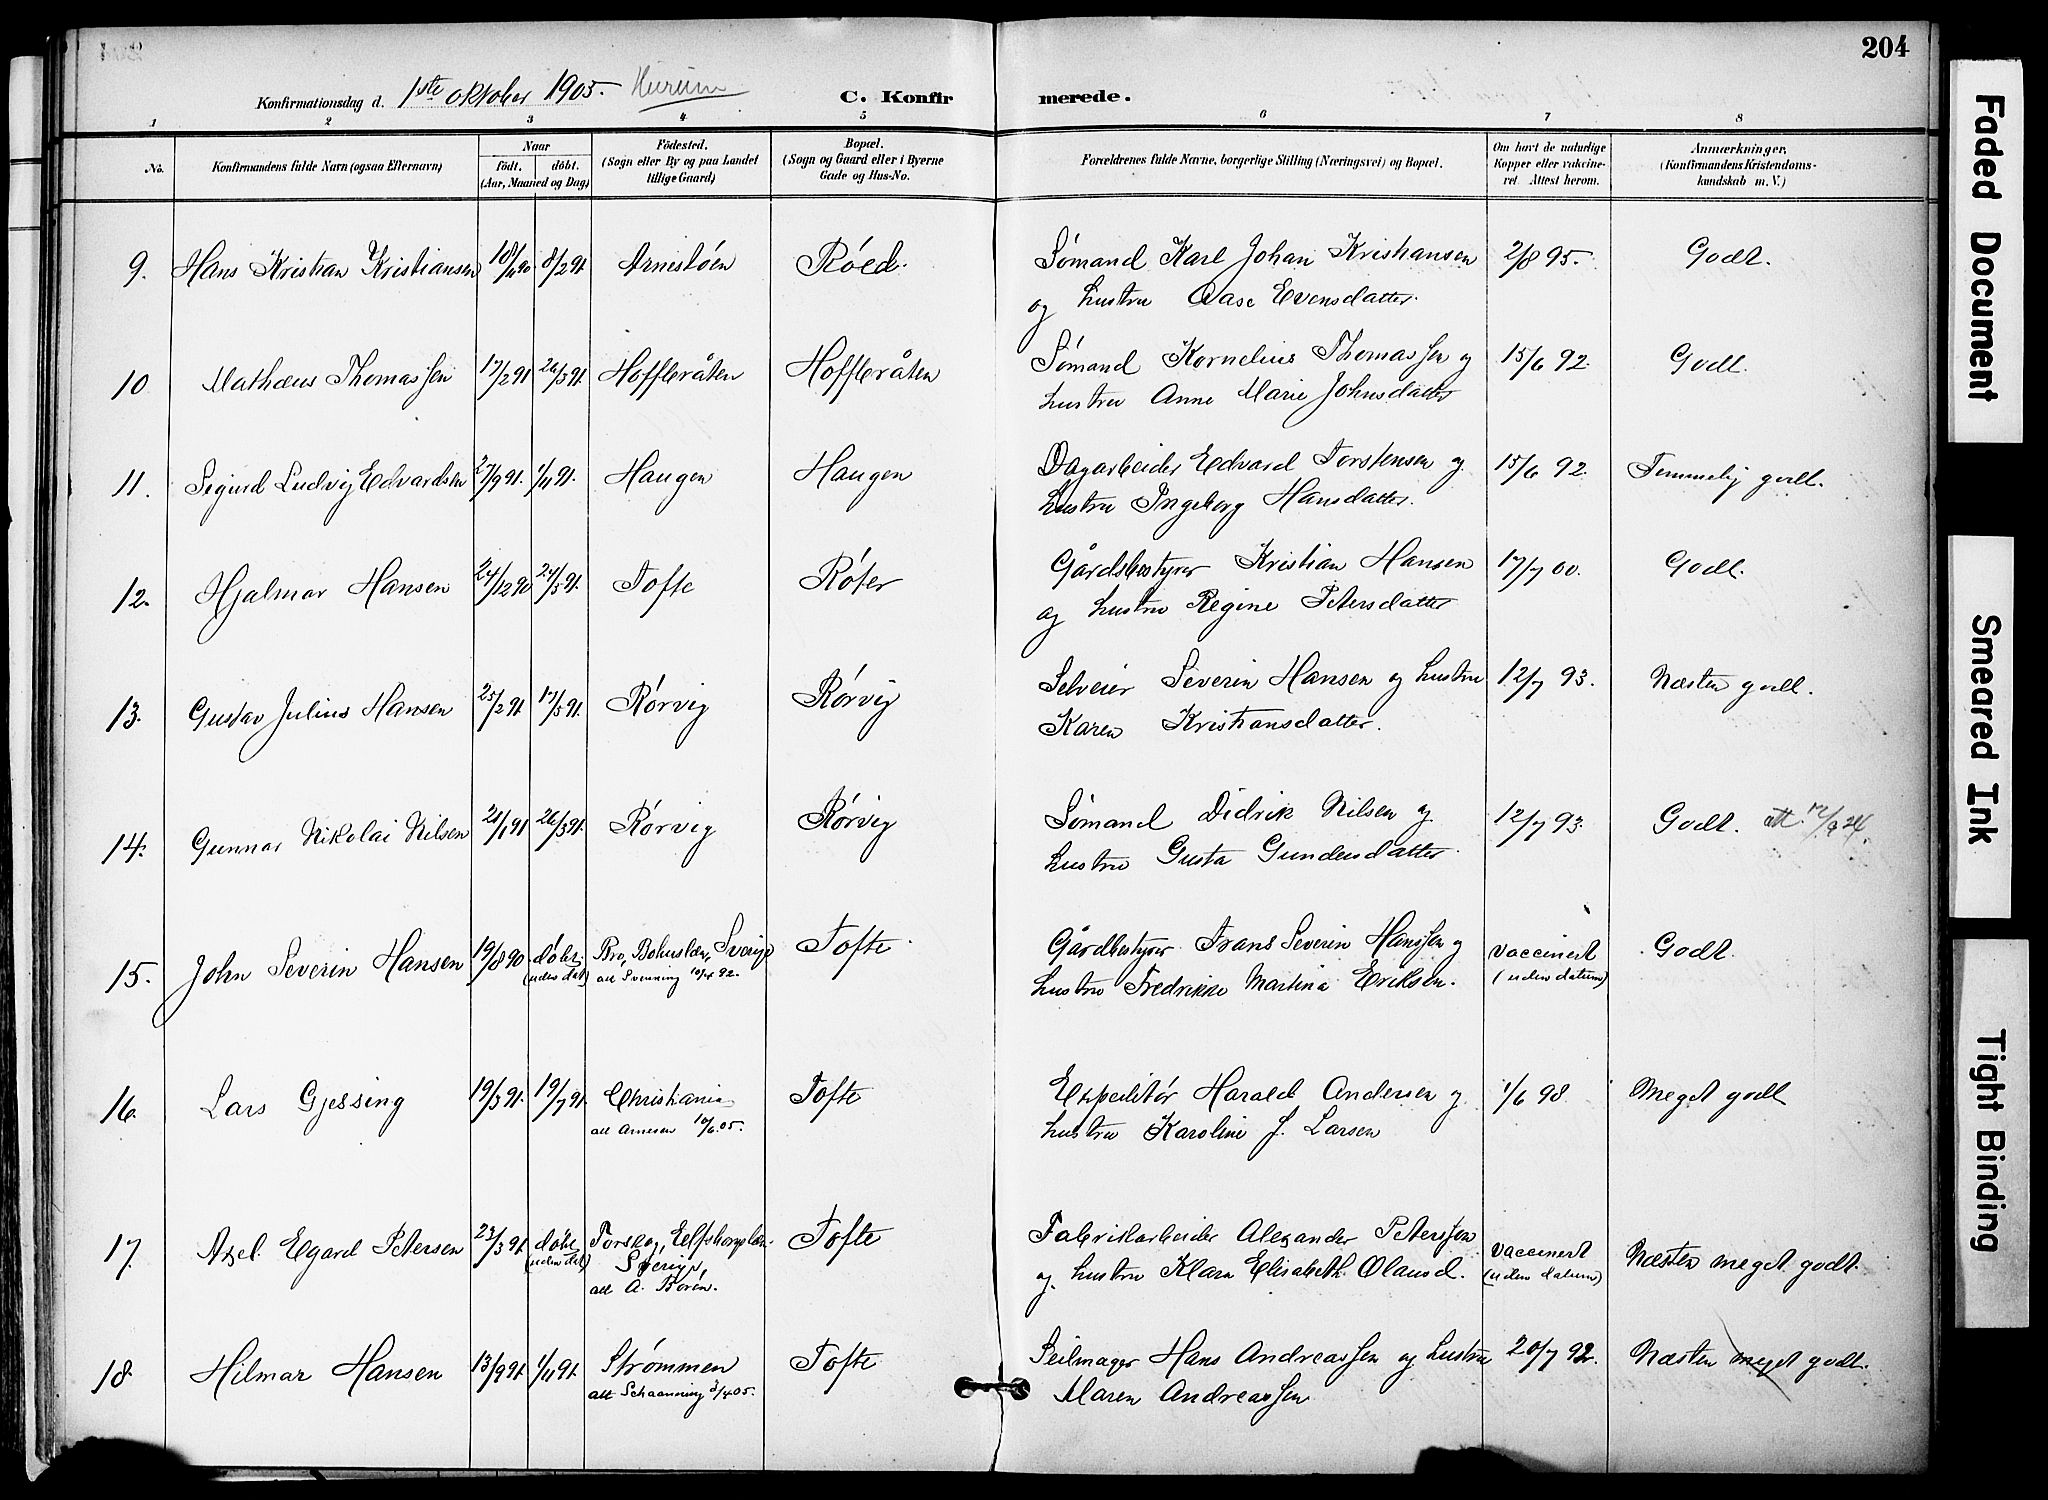 204
Konfirmationsdag d. 1ste oktober 1905. Hurum
C. Konfirmerede.
1 2 3 4 5 6 7 8
No.
Konfirmandens fulde Navn (ogsaa Efternavn)
Naar
født. døbt.
(Aar, Maaned og Dag)
Fødested.
(Sogn eller By og paa Landet
tillige Gaard)
Bopæl.
(Sogn og Gaard eller i Byerne
Gade og Hus-No.
Forældrenes fulde Navne, borgerlige Stilling (Næringsvei) og Bopæl.
Om havt de naturlige
Kopper eller vaccine-
ret. Attest herom.
Anmærkninger,
(Konfirmandens Kristendoms-
kundskab m. V.)
9. Hans Kristian Kristiansen 8/2 91. Arnestøen Røed. Sømand Karl Johan Kristiansen 2/8 95. Godt.
og hustru Aase Evensdatter.
10 Mathæus Thomassen 17/2 91 26/3 91. Hoffleråten Hoffleråten Sømand Kornelius Thomassen og 15/6 92. Godt.
hustru Anne Marie Johnsdatter
11. Sigurd Ludvig Edvardsen 27/9 91. 1/11 91. Haugen Haugen Dagarbeider Edvard Torstensen og 15/6 92. Temmelig godt.
hustru Ingeborg Hansdatter.
12. Hjalmar Hansen 24/12 90 24/5 91. Tofte Røter Gårdsbestyrer Kristian Hansen 17/7 00. Godt.
og hustru Regine Petersdatter
13. Gustav Julius Hansen 25/2 91. 17/5 91. Rørvig Rørvig Selveier Severin Hansen og hustru 12/7 93. Næsten godt.
Karen Kristiansdatter.
14. Gunnar Nikolai Nilsen 21/1 91 26/3 91. Rørvig Rørvig Sømand Didrik Nilsen og 12/7 93. Godt. att. 12/9 24.
hustru Gusta Gundersdatter.
15. John Severin Hansen 19/8 90 døbt. Bro, Bohuslæn, Sverige Tofte Gårdbestyrer Frans Severin Hanssen og vaccinert Godt.
(uden dat) att Svenning 10/4 92. hustru Fredrikke Martina Eriksen. (uden datum)
16. Lars Gjessing 19/3 91. 19/7 91. Christiania Tofte Expeditør Harald Andersen og 1/6 98. Meget godt
att Arnesen 10/6 05. hustru Karoline J. Larsen
17. Axel Egard Petersen 23/3 91. døbt Torskog, Elfsborgslæn Tofte Fabrikarbeider Alexander Peterssen vaccinert Næsten meget godt.
(uden dat) Sverige, og hustru Klara Elisabeth Olausd. (uden datum)
att A. Thorén.
18. Hilmar Hansen 13/9 91. 1/11 91. Strømmen Tofte Seilmager Hans Andreassen og hustru 20/7 92. Næsten meget godt.
att Schaanning 3/4 05. Maren Andreassen
Faded Document
Smeared Ink
Tight Binding